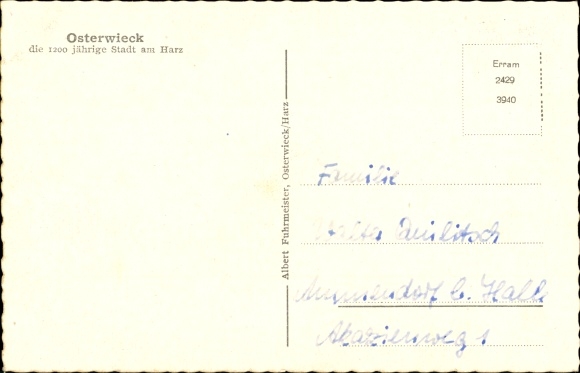 Osterwieck
die 1200 jährige Stadt am Harz
Erram
2429
3940
Albert Fuhrmeister, Osterwieck/Harz
Familie
Walter
Ammendorf b. Halle
Akazienweg 1